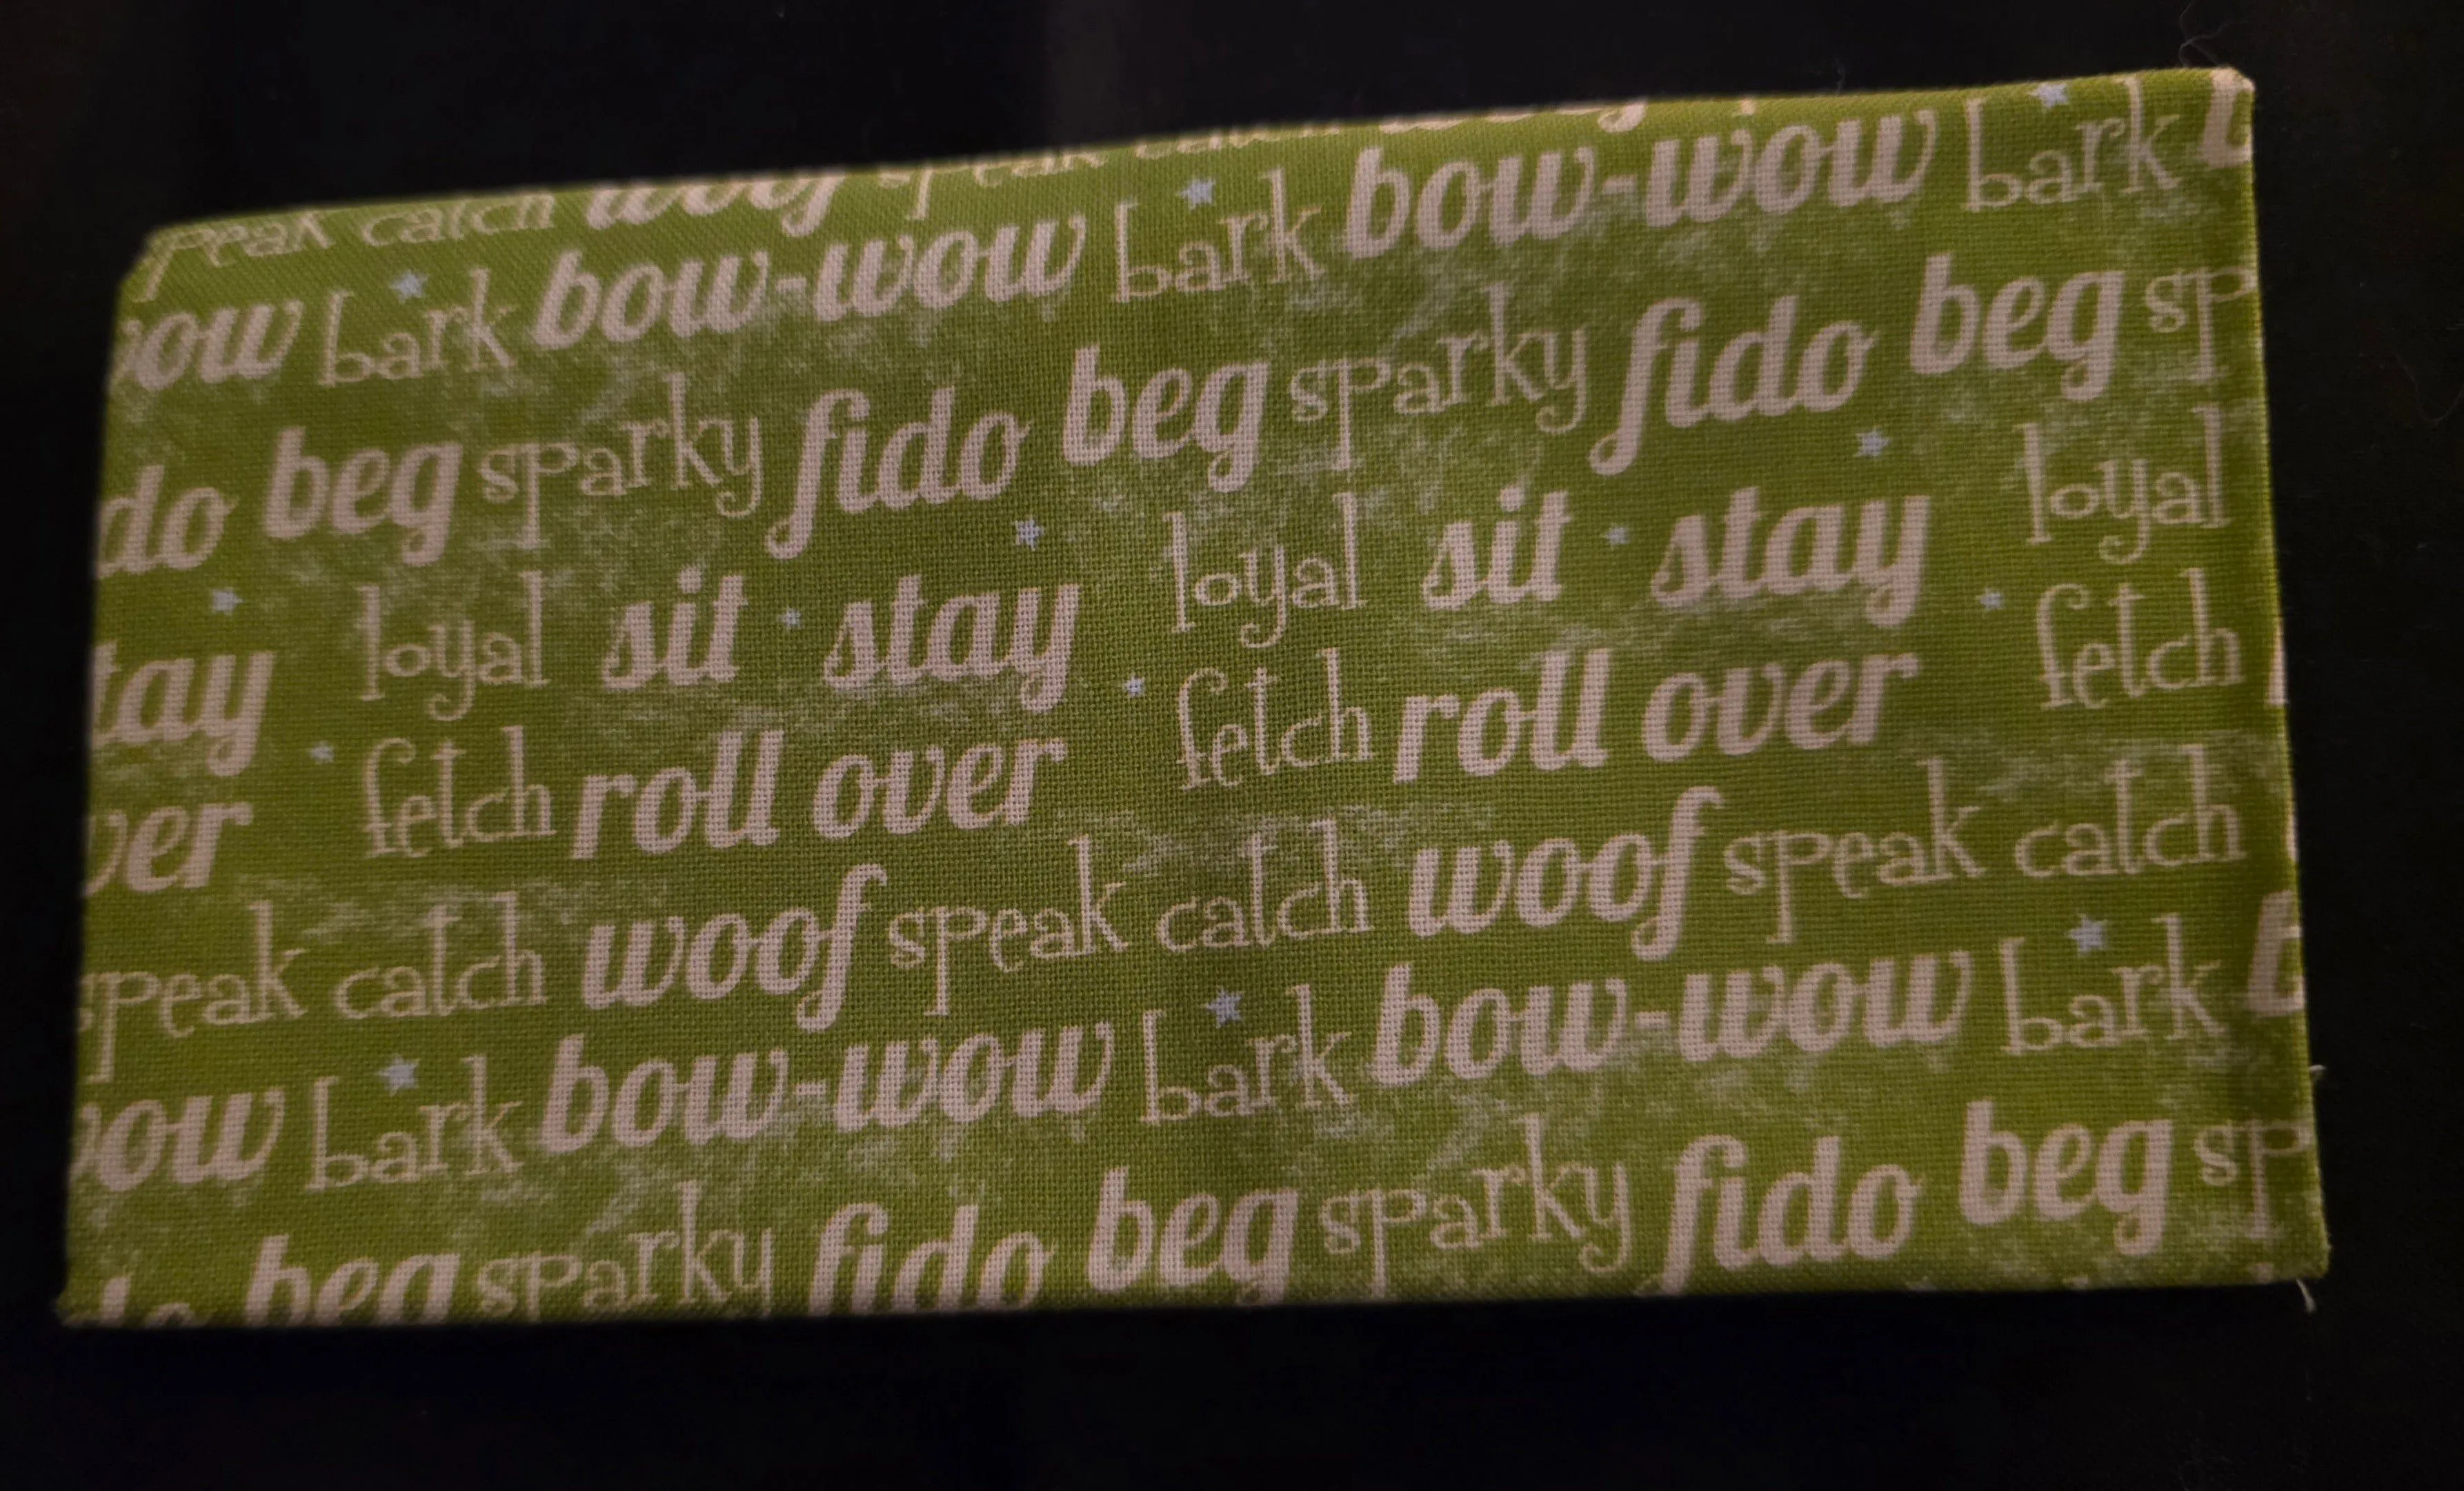 speak catch woof speak catch
bark bow-wow bark bow-wow bark
beg sparky fido beg sparky fido beg
loyal sit stay loyal sit stay loyal
fetch roll over fetch roll over fetch
speak catch woof speak catch woof speak catch
bark bow-wow bark bow-wow bark
beg sparky fido beg sparky fido beg